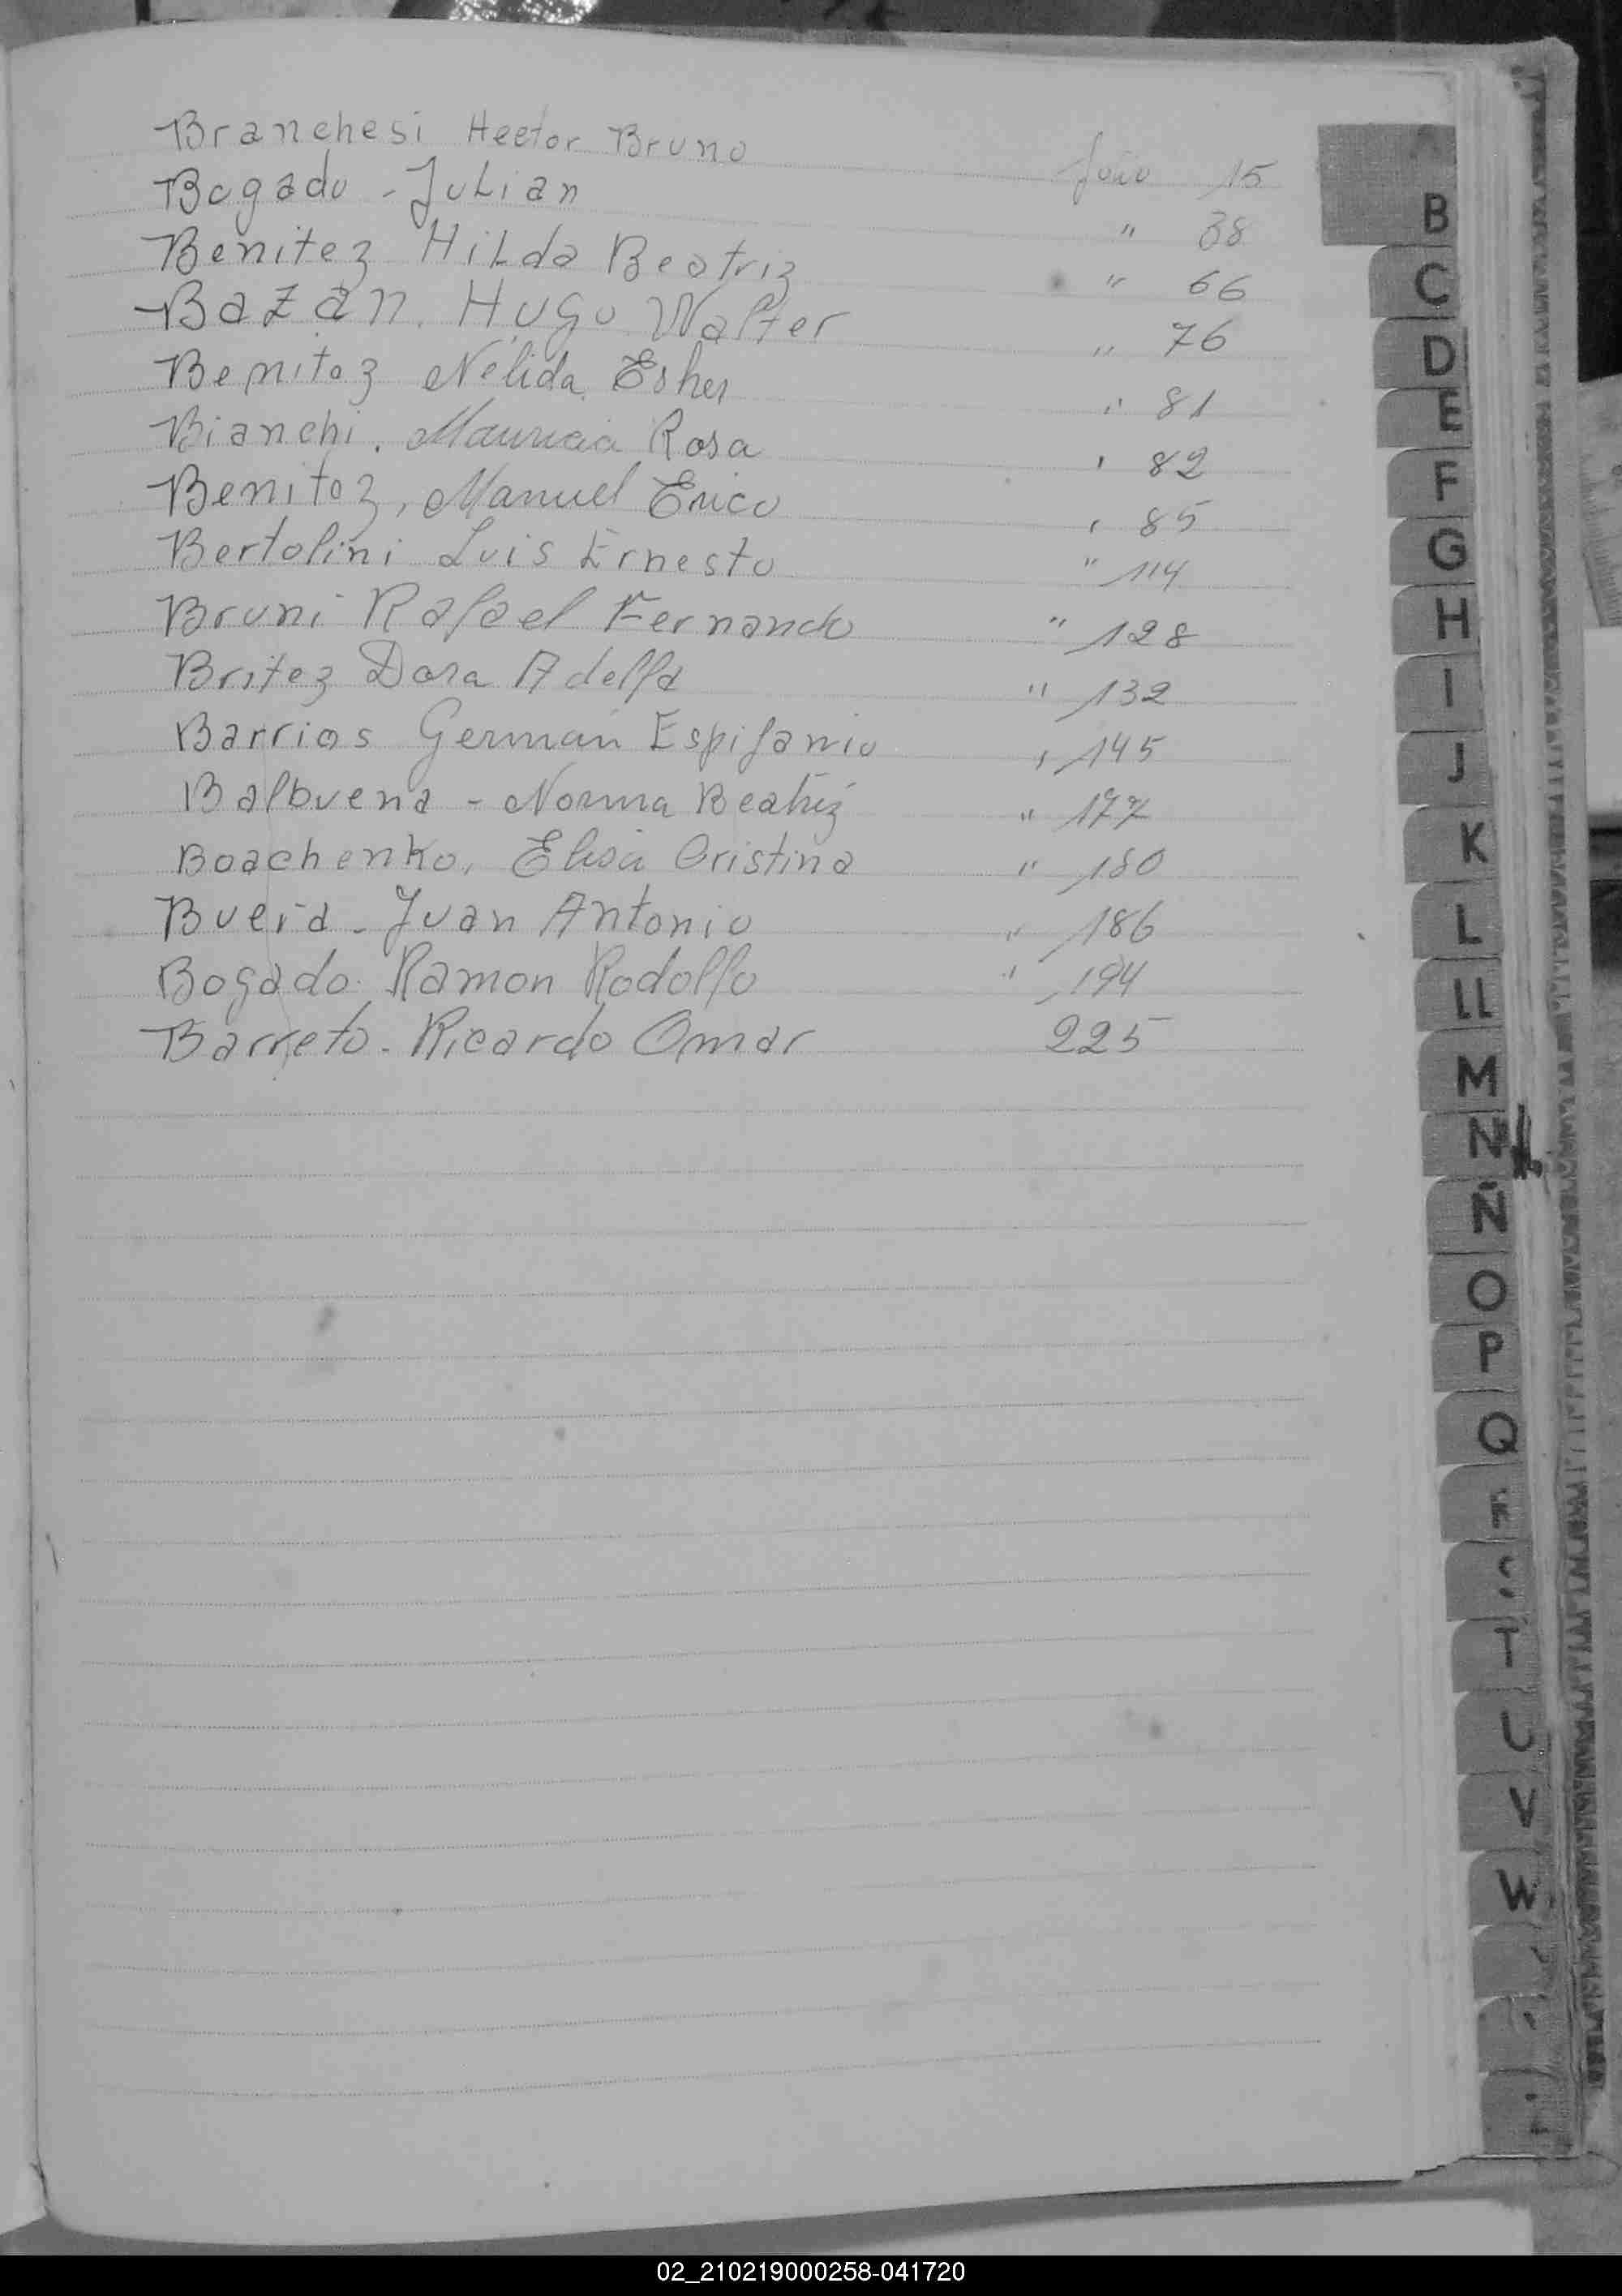 Branchesi Hector Bruno folio 15
Bogado - Julian " 38
Benitez Hilda Beatriz " 66
Bazán. Hugo Walter " 76
Benitez Nélida Esher " 81
Bianchi. Mauricia Rosa " 82
Benitez, Manuel Erico " 85
Bertolini Luis Ernesto " 114
Bruni Rafael Fernando " 128
Britez Dora Adelfa " 132
Barrios Germán Espifanio " 145
Balbuena - Norma Beatriz " 177
Boachenko, Elisa Cristina " 180
Buera - Juan Antonio " 186
Bogado. Ramon Rodolfo " 194
Barreto. Ricardo Omar 225
B
C
D
E
F
G
H
I
J
K
L
Ll
M
N
Ñ
O
P
Q
R
S
T
U
V
W
02_210219000258-041720